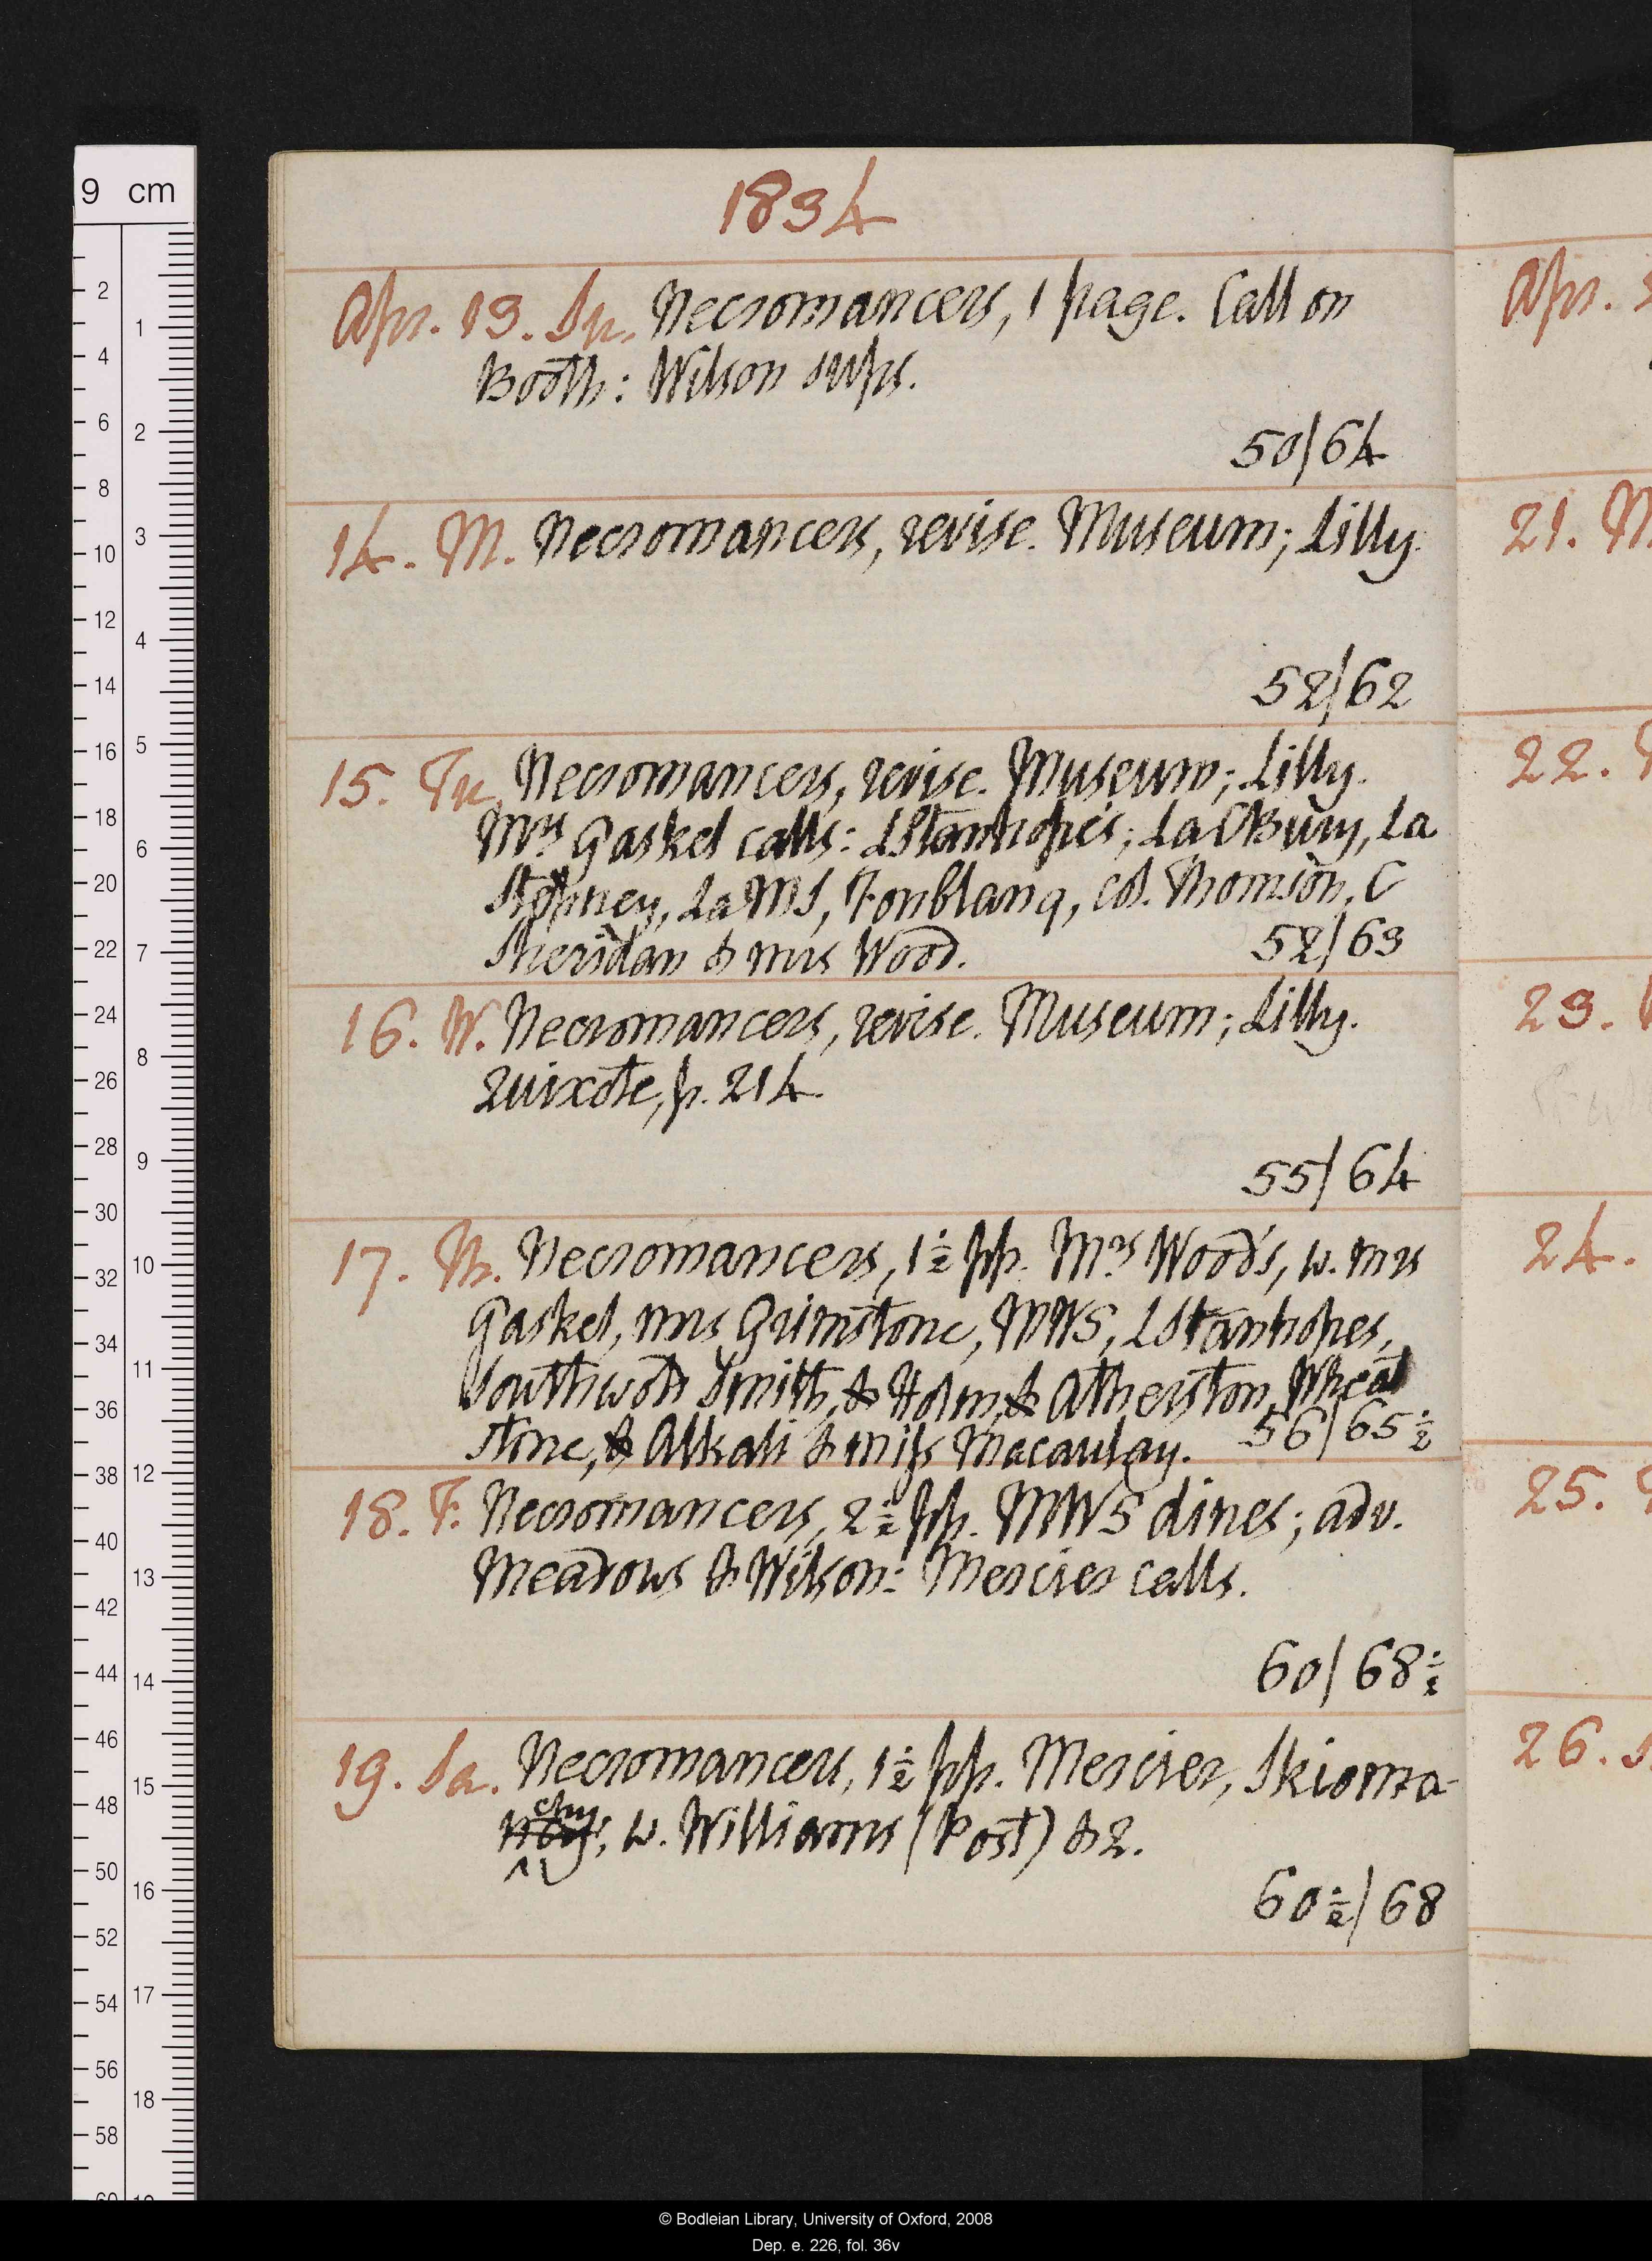 9 cm
1834
Apr. 13. Su. Necromancers, 1 page. Call on
Booth: Wilson sups.
50/64
14. M. Necromancers, revise. Museum; Lilly.
52/62
15. Tu. Necromancers, revise. Museum; Lilly.
Mrs Gaskel calls: LStanhope's; La CBury, La
Stepney, La MS, Fonblanq, Col. Thomson, C
Sheridan & mrs Wood.
52/63
16. W. Necromancers, revise. Museum; Lilly.
Quixote, p. 214.
55/64
17. Th. Necromancers, 1½ pp. Mrs Wood's, w. mrs
Gaskel, mrs Grimstone, MWS, LStanhopes,
Southwoth Smith, & Holm, & Atherston, Wheat
stone, & Alkali & miss Macaulay.
56/65½
18. F. Necromancers, 2½ pp. MWS dines; adv.
Meadows & Wilson: Mercier calls.
60/68½
19. Sa. Necromancers, 1½ pp. Mercier, Skioma-
chy, w. Williams (Post) & 2.
60½/68
Apr.
21. M
22. T
23.
24.
25.
26. S
© Bodleian Library, University of Oxford, 2008
Dep. e. 226, fol. 36v